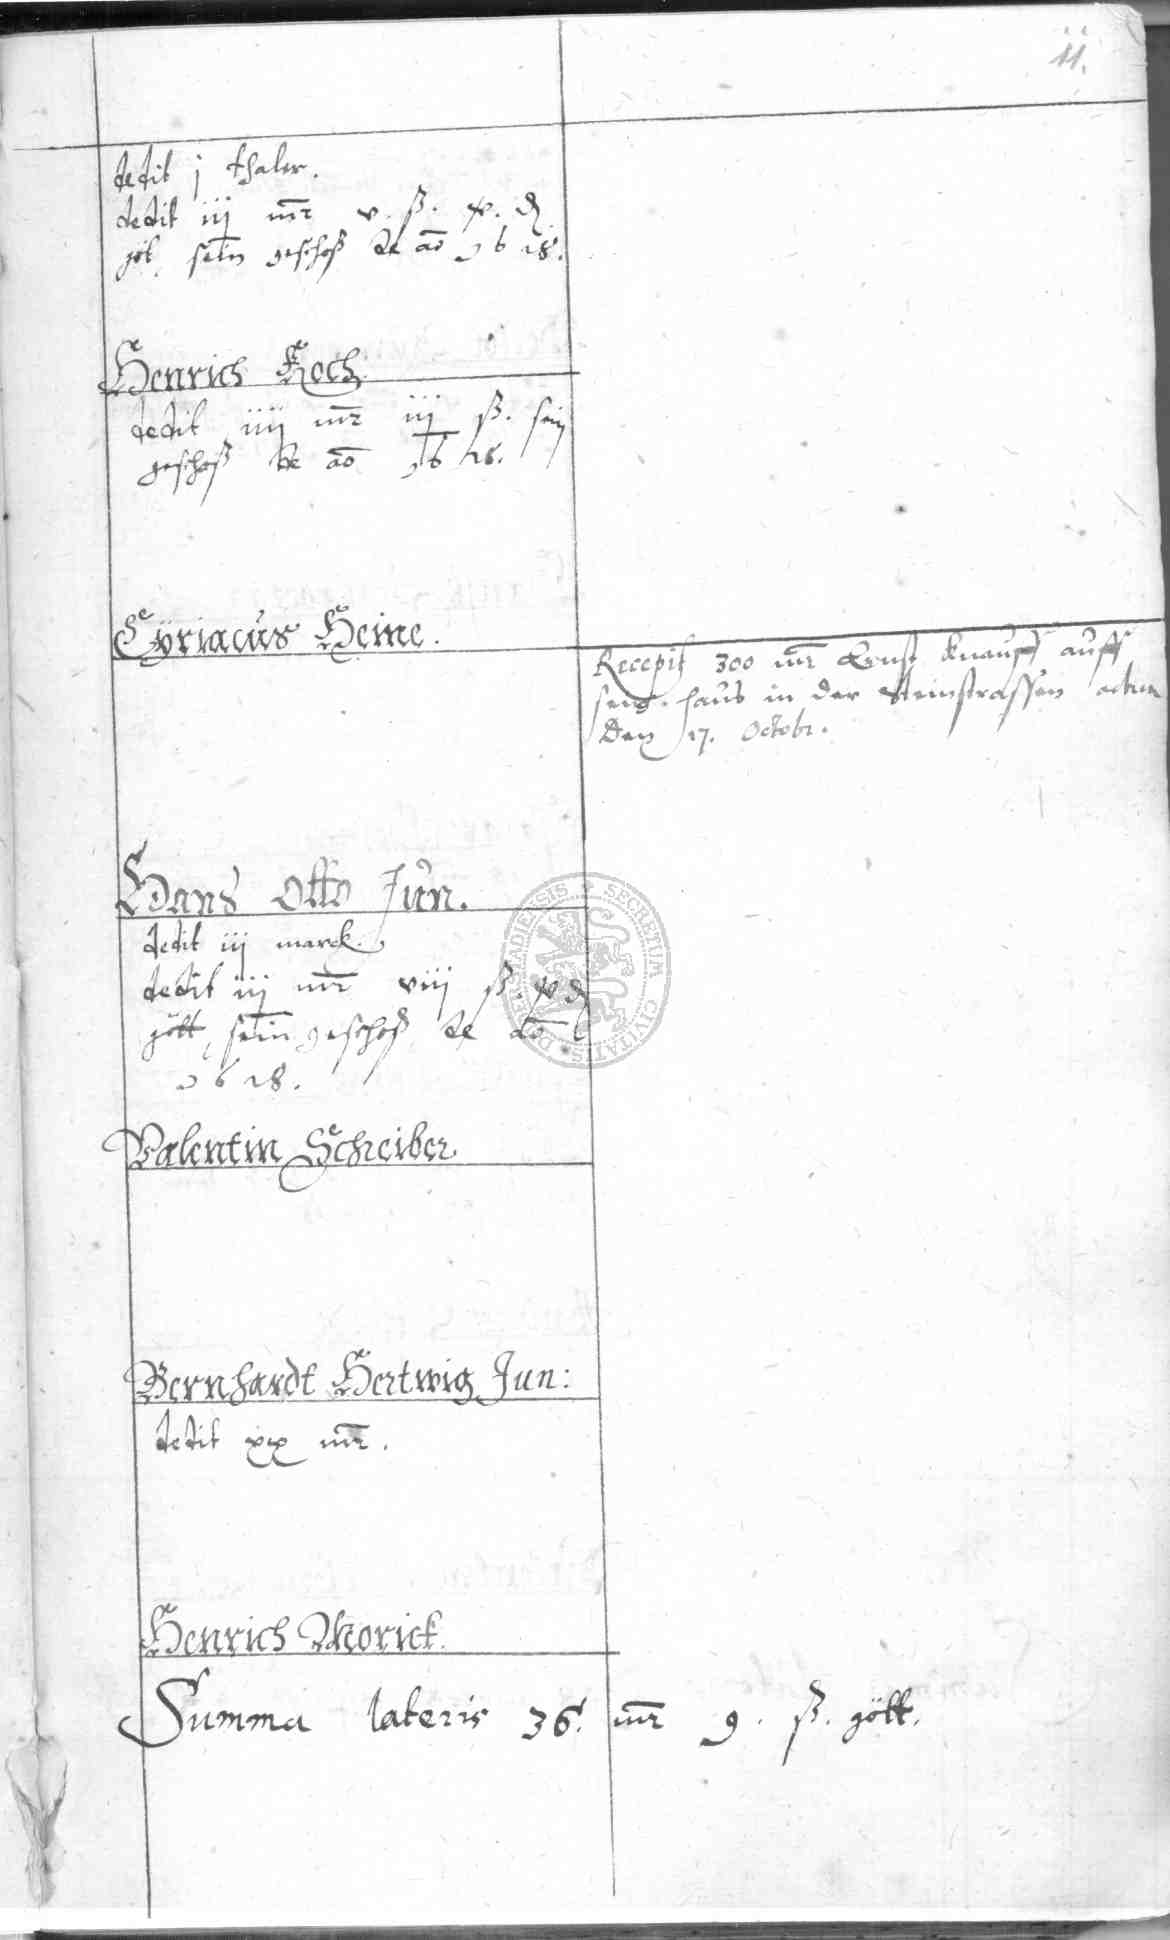 11.
dedit j thaler.
dedit iij mr v. ß. xv. ₰
göt. sein geschoß de ao 1618.
Henrich Koch
dedit iiij mr iij ß. sein
geschoß de ao 1618.
Cÿriacus Heine.
Recepit 300 mr Ernst Knauff auff
sein haus in der Steinstrassen actum
den 17. Octobr.
Hans Otto Jun.
dedit iij marck.
dedit iij mr viij ß. xv ₰
gött. sein geschoß de ao
1618.
Valentin Schreiber
Bernhardt Hertwig Jun:
dedit xx mr.
Henrich Morick.
Summa lateris 36. mr 9. ß. gött.
SECRETUM CIVITATIS DERSTADIENSIS